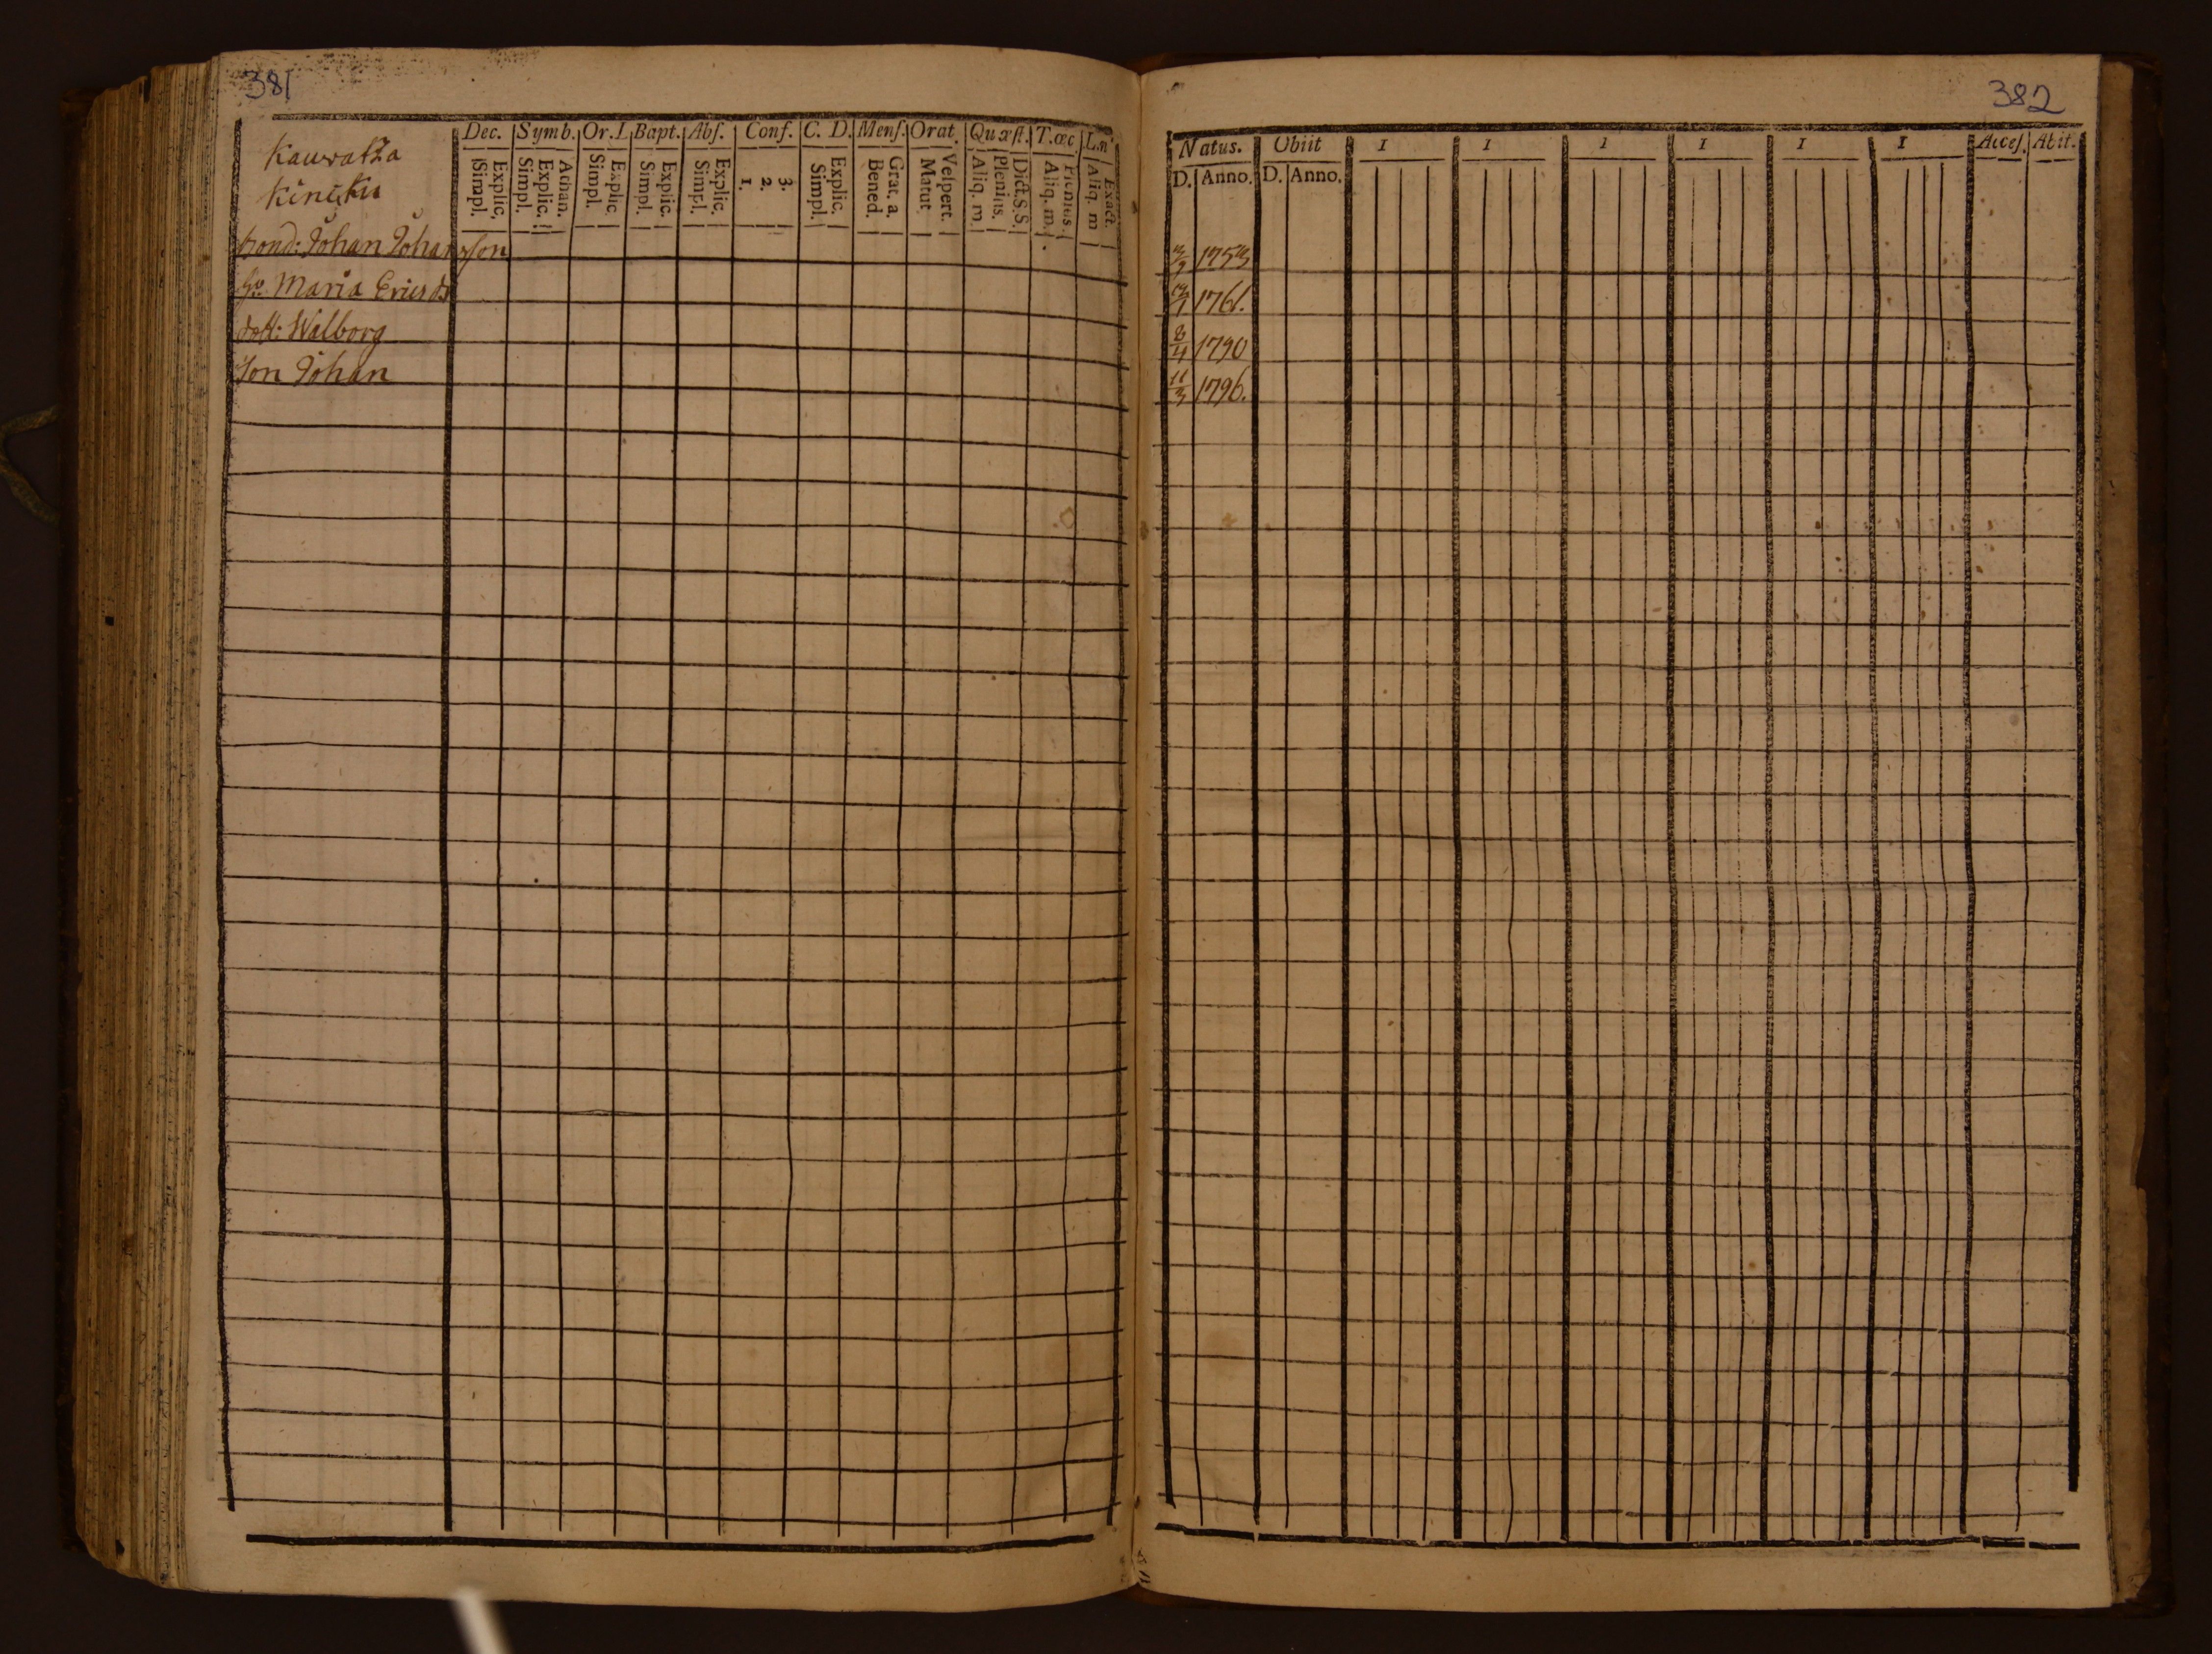 381
Dec. Symb. Or.D. Bapt. Abſ. Conf. C. D. Menſ. Orat. Quæſt. T.œc. L.n.
Simpl. Explic. Simpl. Explic. Athan. Simpl. Explic. Simpl. Explic. Simpl. Explic. 1. 2. 3. Simpl. Explic. Bened. Grat. a. Matut. Veſpert. Aliq. m. Plenius. Dict.S.S. Aliq. m. Plenius. Aliq. m Exact.
Kauvatza
Kinisku
bond: Johan Johansson
Maria Ericsdr
dott: Walborg
son Johan
382
Natus. Obiit I I I I I I Acceſ. Abit.
D. Anno. D. Anno.
1753
1761.
8/4 1790
11/3 1796.